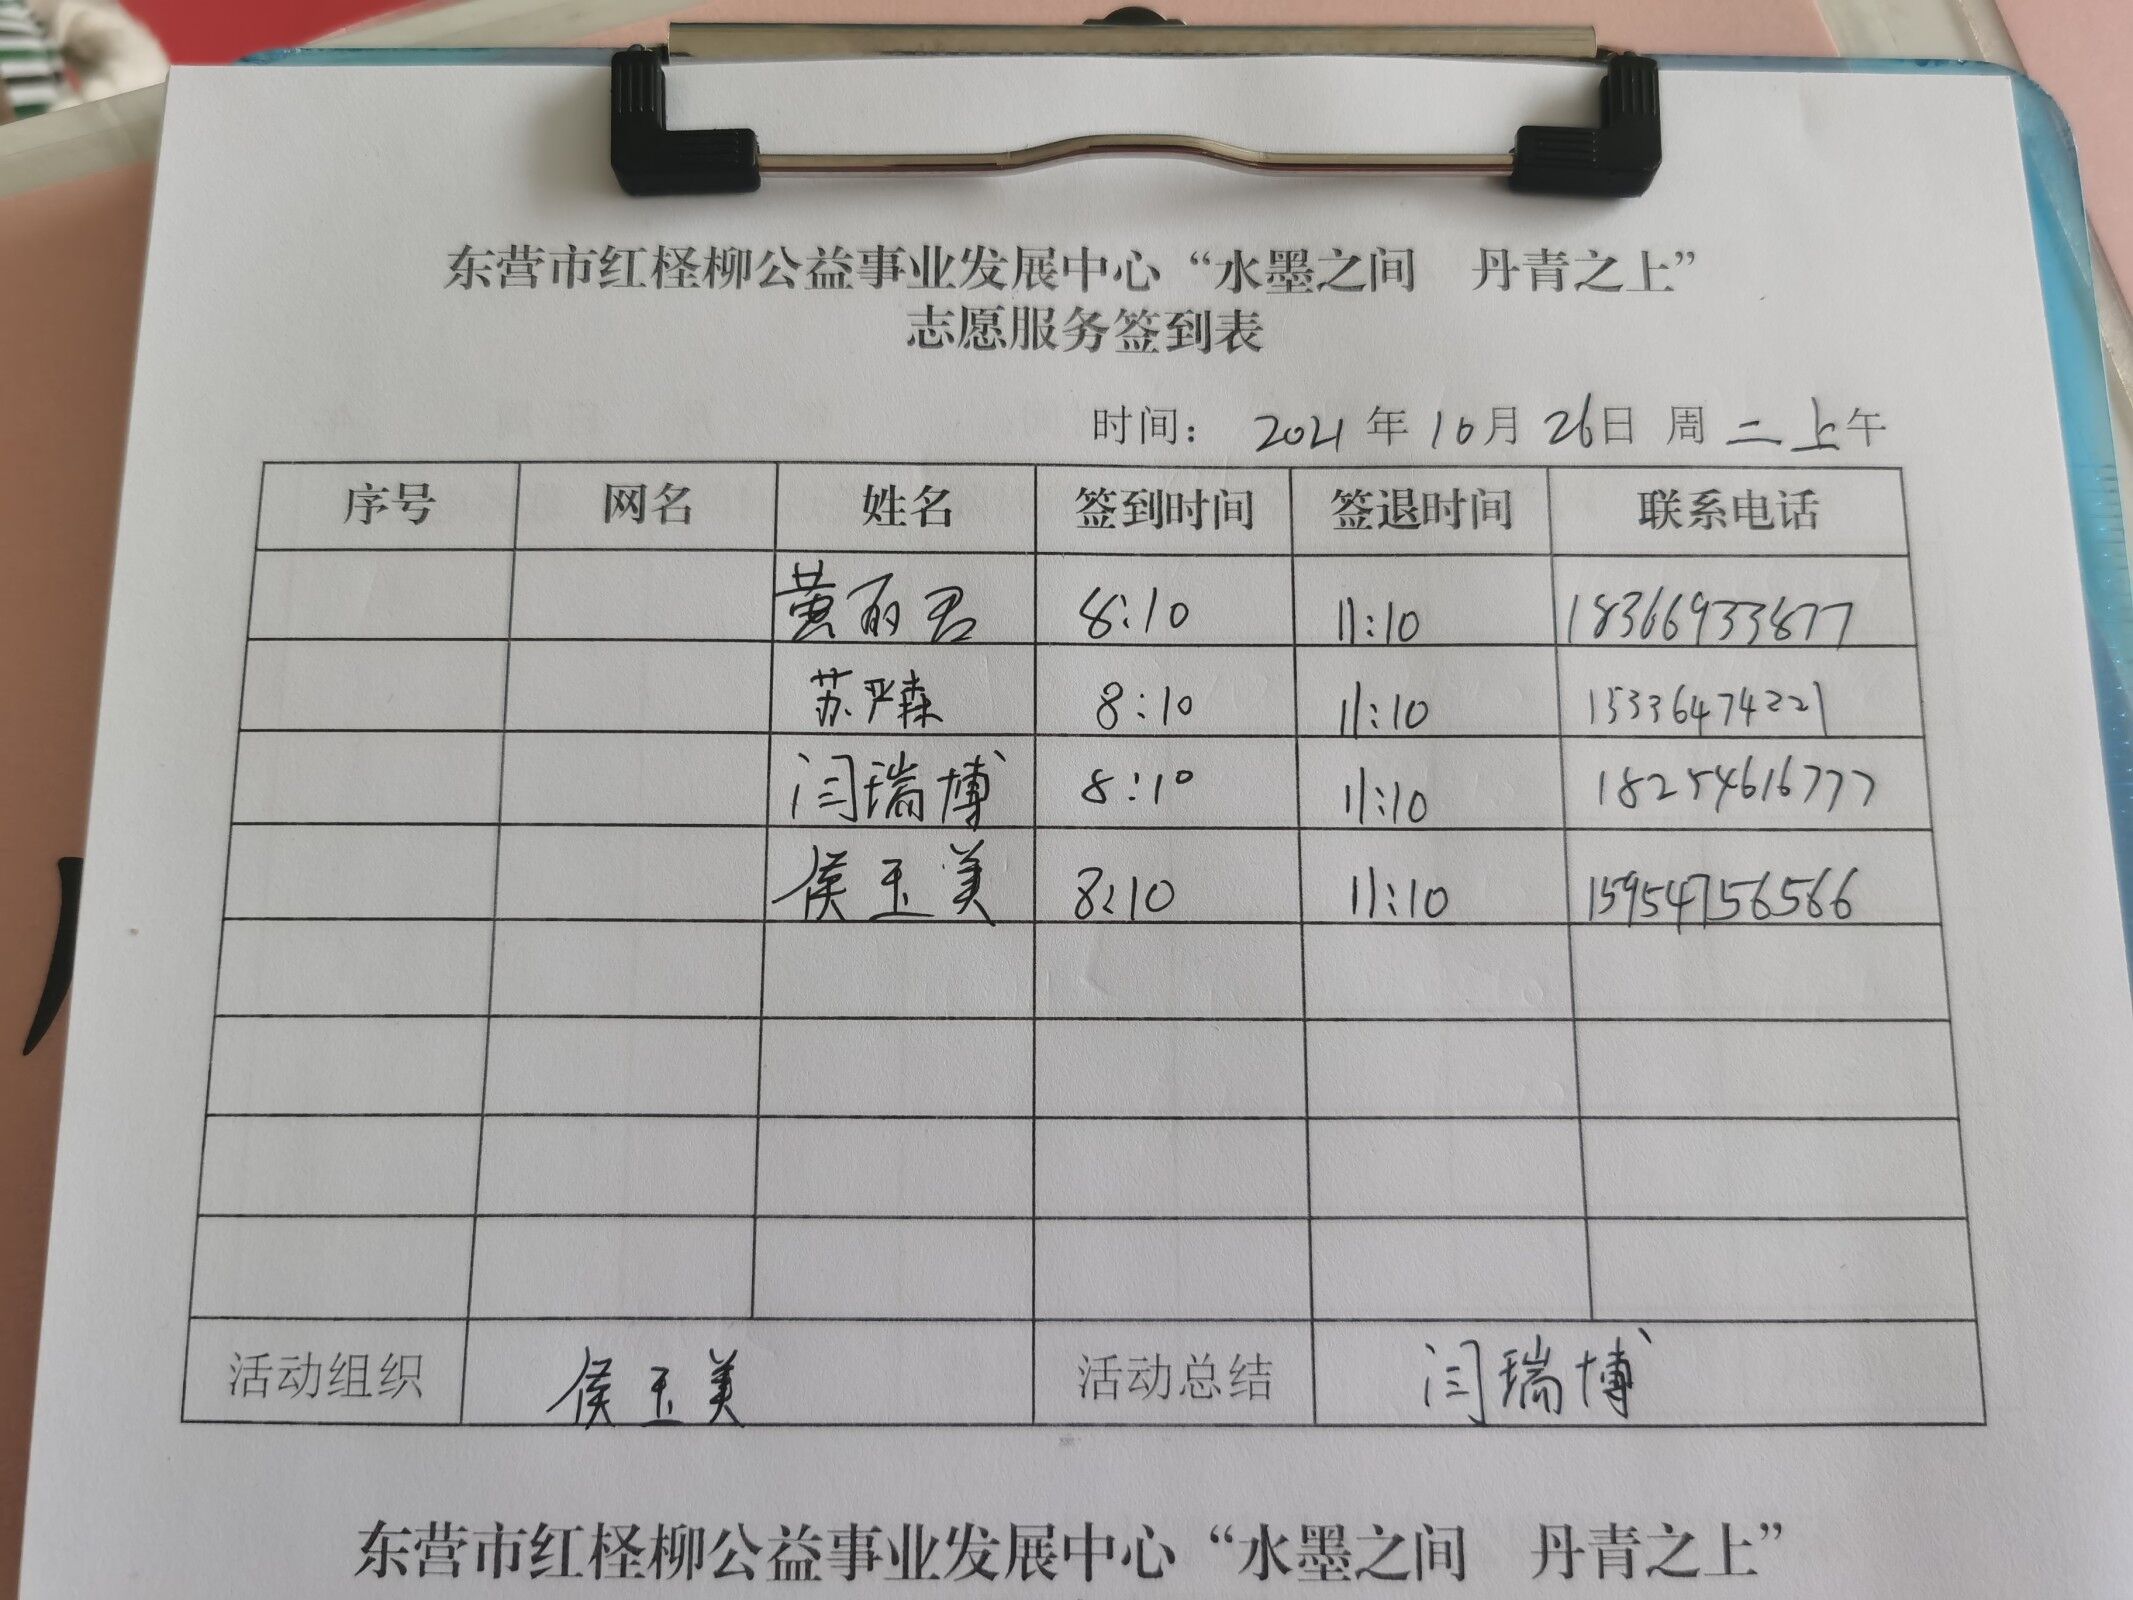 东营市红柽柳公益事业发展中心“水墨之间 丹青之上”
志愿服务签到表
时间： 2021 年 10月 26日 周 二 上午
序号 网名 姓名 签到时间 签退时间 联系电话
黄丽君 8:10 11:10 18366933877
苏严森 8:10 11:10 15336474221
闫瑞博 8:10 11:10 18254616777
侯玉美 8:10 11:10 15954756566
活动组织 侯玉美 活动总结 闫瑞博
东营市红柽柳公益事业发展中心“水墨之间 丹青之上”